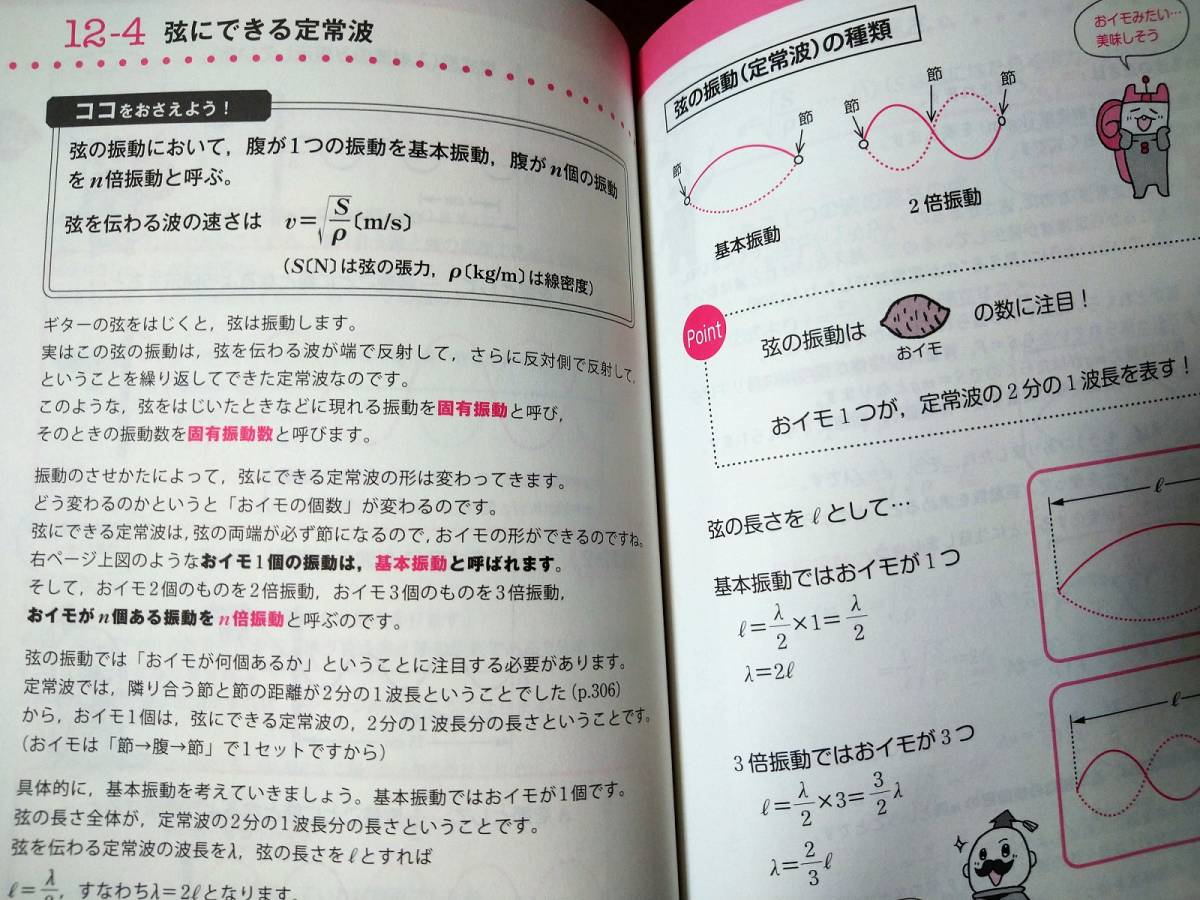 12-4 弦にできる定常波
ココをおさえよう！
弦の振動において，腹が1つの振動を基本振動，腹がn個の振動
をn倍振動と呼ぶ。
弦を伝わる波の速さは v=√(S/ρ)〔m/s〕
(S〔N〕は弦の張力，ρ〔kg/m〕は線密度)
ギターの弦をはじくと，弦は振動します。
実はこの弦の振動は，弦を伝わる波が端で反射して，さらに反対側で反射して，
ということを繰り返してできた定常波なのです。
このような，弦をはじいたときなどに現れる振動を固有振動と呼び，
そのときの振動数を固有振動数と呼びます。
振動のさせかたによって，弦にできる定常波の形は変わってきます。
どう変わるのかというと「おイモの個数」が変わるのです。
弦にできる定常波は，弦の両端が必ず節になるので，おイモの形ができるのですね。
右ページ上図のようなおイモ1個の振動は，基本振動と呼ばれます。
そして，おイモ2個のものを2倍振動，おイモ3個のものを3倍振動，
おイモがn個ある振動をn倍振動と呼ぶのです。
弦の振動では「おイモが何個あるか」ということに注目する必要があります。
定常波では，隣り合う節と節の距離が2分の1波長ということでした(p.306)
から，おイモ1個は，弦にできる定常波の，2分の1波長分の長さということです。
(おイモは「節→腹→節」で1セットですから)
具体的に，基本振動を考えていきましょう。基本振動ではおイモが1個です。
弦の長さ全体が，定常波の2分の1波長分の長さということです。
弦を伝わる定常波の波長をλ，弦の長さをℓとすれば
ℓ=λ/2，すなわちλ=2ℓとなります。
弦の振動(定常波)の種類
おイモみたい…
美味しそう
節
節
節
節
節
基本振動
2倍振動
Point
弦の振動は の数に注目！
おイモ
おイモ1つが，定常波の2分の1波長を表す！
弦の長さをℓとして…
基本振動ではおイモが1つ
ℓ=λ/2×1=λ/2
λ=2ℓ
ℓ
3倍振動ではおイモが3つ
ℓ=λ/2×3=3/2λ
λ=2/3ℓ
ℓ